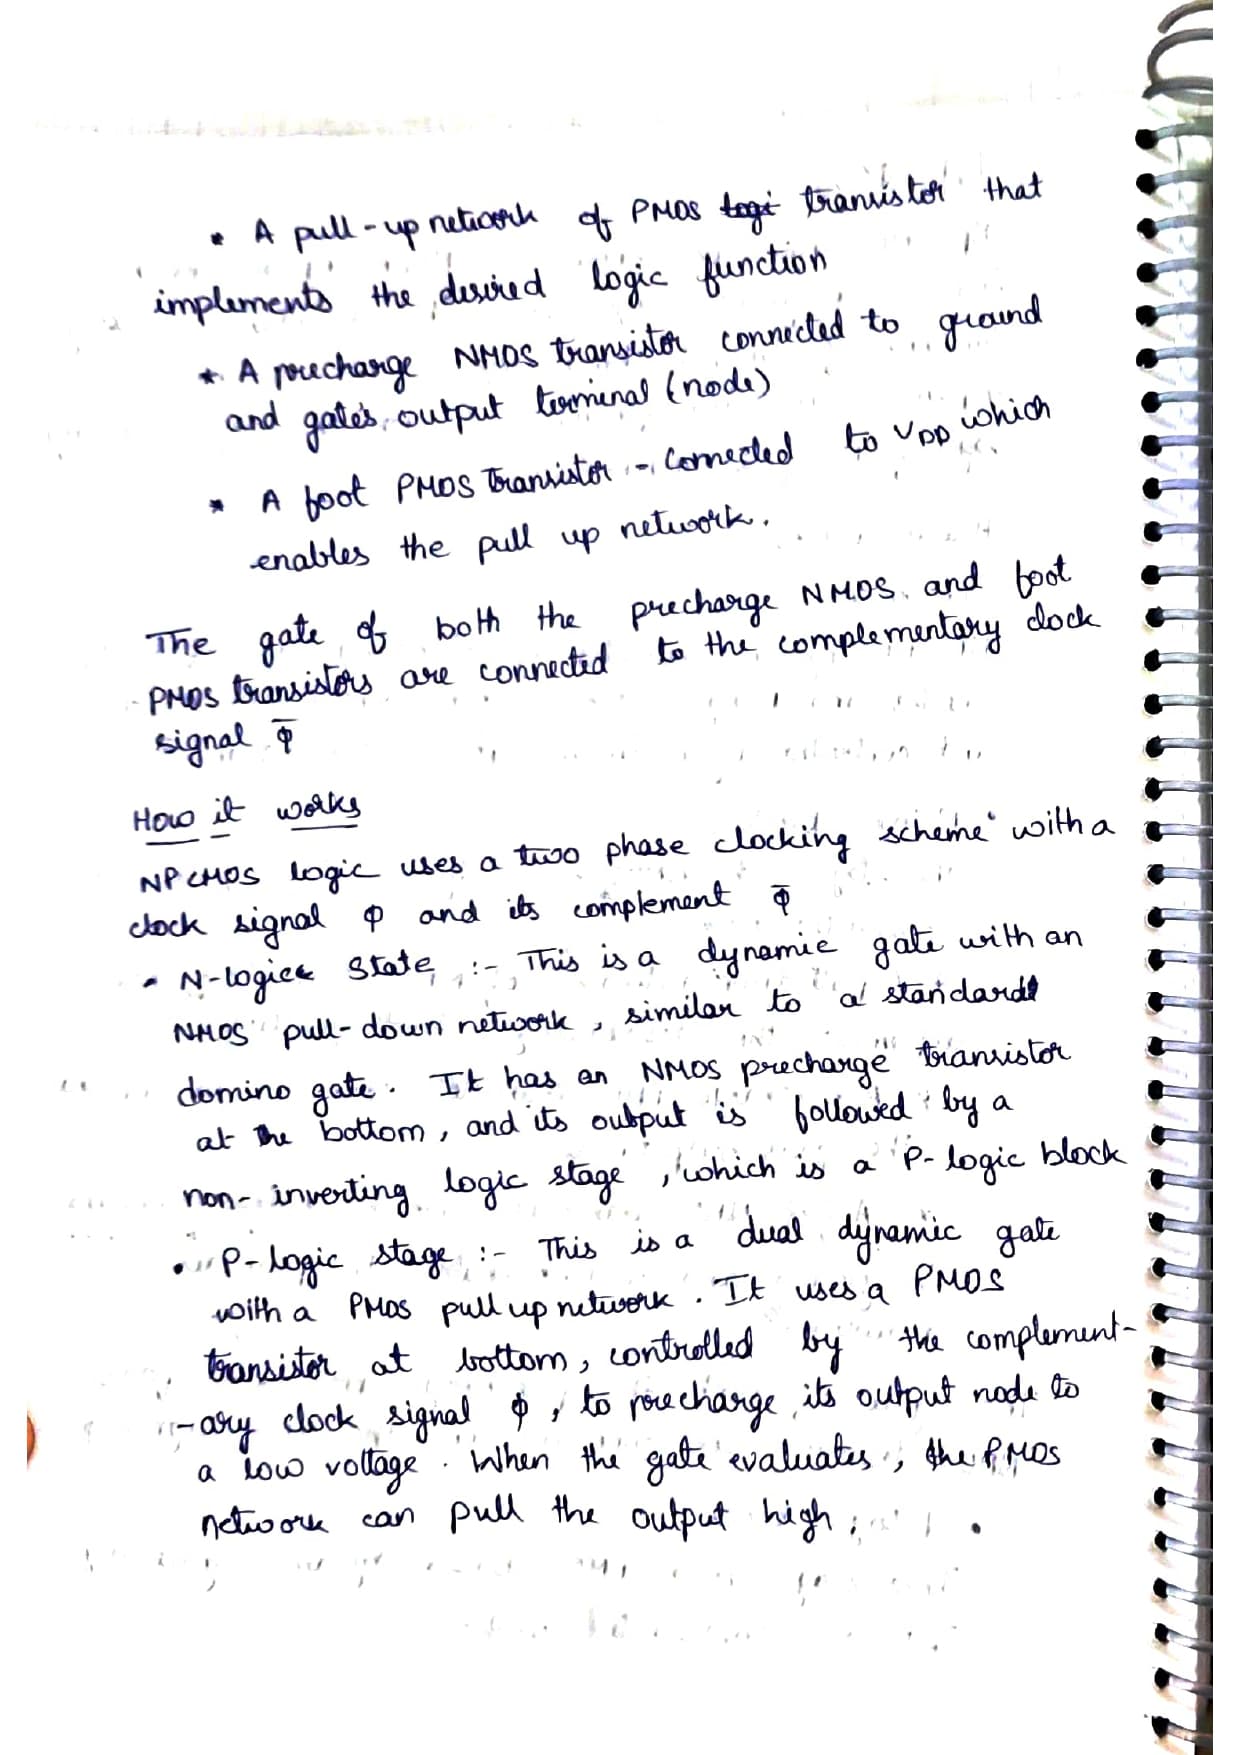 * A pull-up network of PMOS logi transistor that
implements the desired logic function
* A precharge NMOS transistor connected to ground
and gate's output terminal (node)
* A foot PMOS transistor - connected to VDD which
enables the pull up network.
The gate of both the precharge NMOS and foot
PMOS transistors are connected to the complementary clock
signal φ̅
How it works
NP CMOS logic uses a two phase clocking scheme with a
clock signal φ and its complement φ̅
• N-logic State :- This is a dynamic gate with an
NMOS pull-down network, similar to a standard
domino gate. It has an NMOS precharge transistor
at the bottom, and its output is followed by a
non-inverting logic stage, which is a P-logic block
• P-logic stage :- This is a dual dynamic gate
with a PMOS pull up network. It uses a PMOS
transistor at bottom, controlled by the complement-
-ary clock signal φ, to precharge its output node to
a low voltage. When the gate evaluates, the PMOS
network can pull the output high.